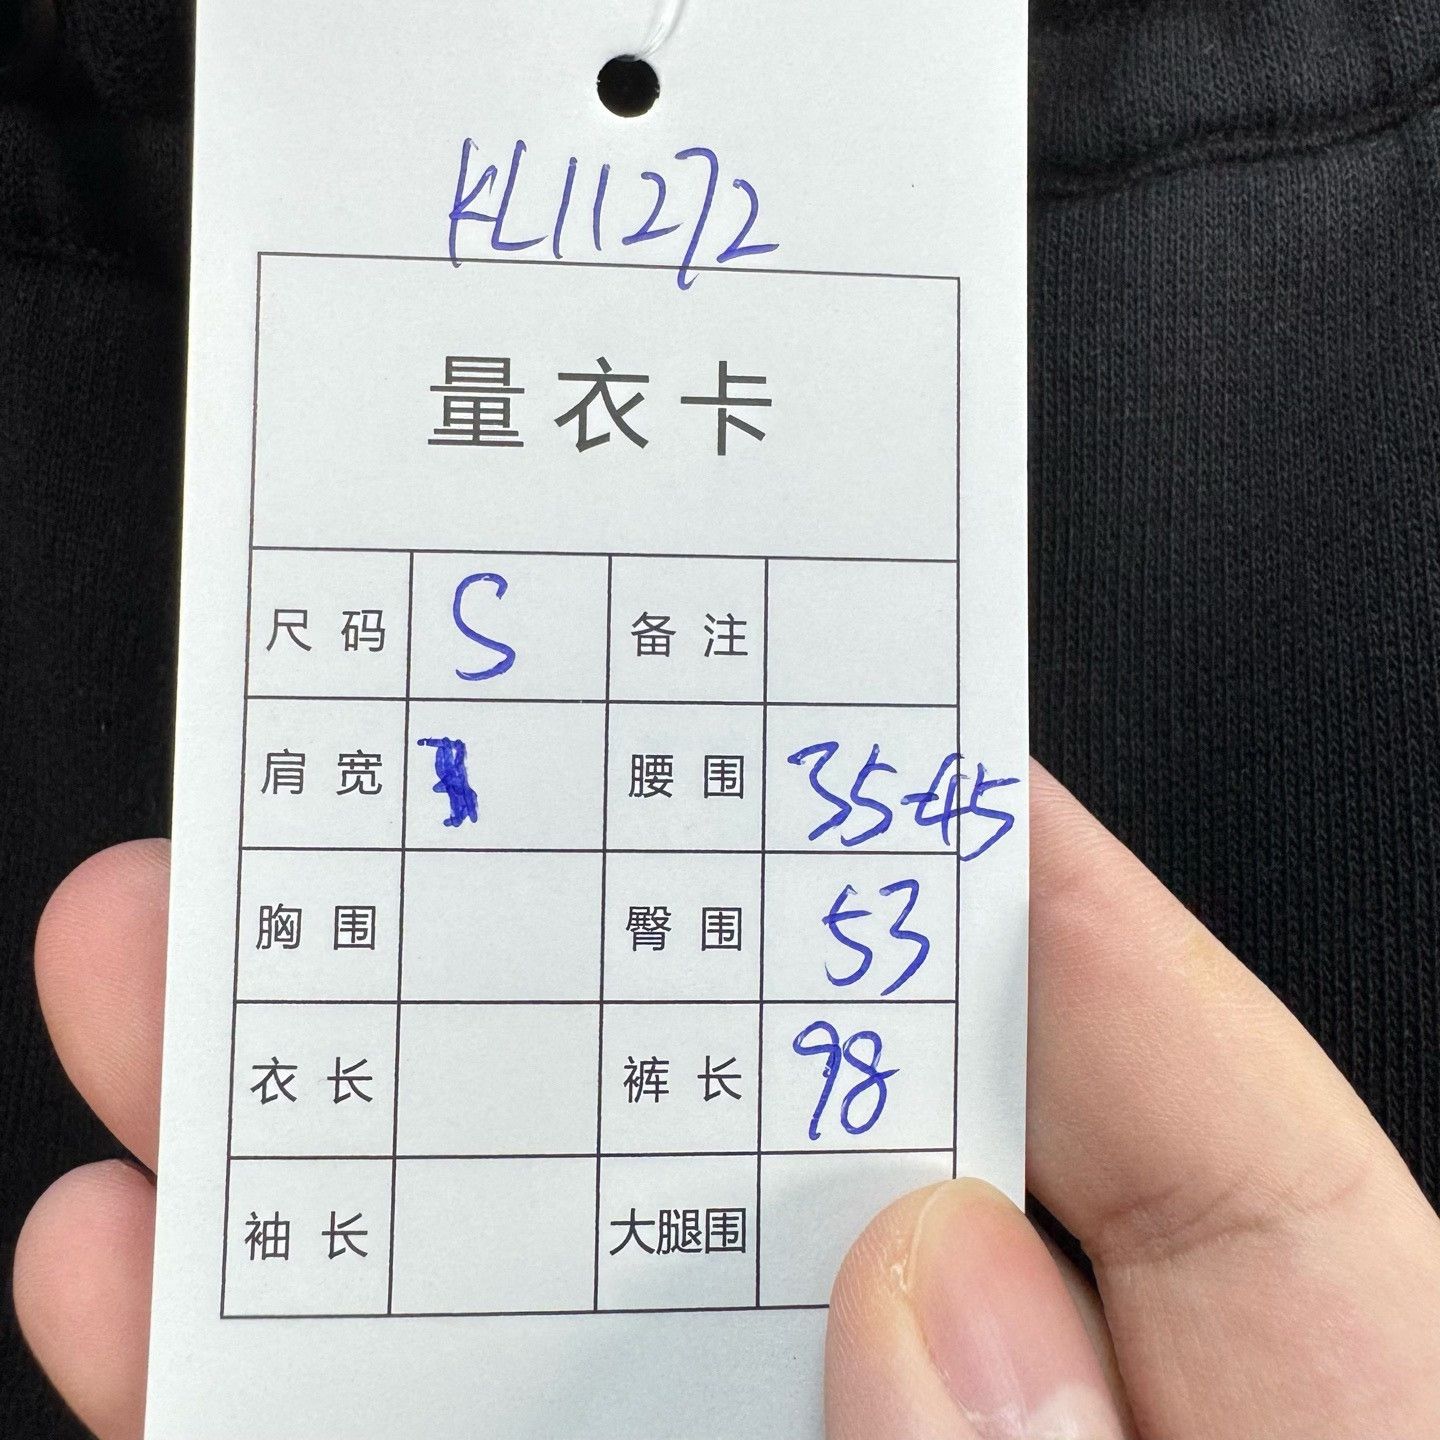 KL11272
量衣卡
尺码 S 备注
肩宽 腰围 35-45
胸围 臀围 53
衣长 裤长 98
袖长 大腿围